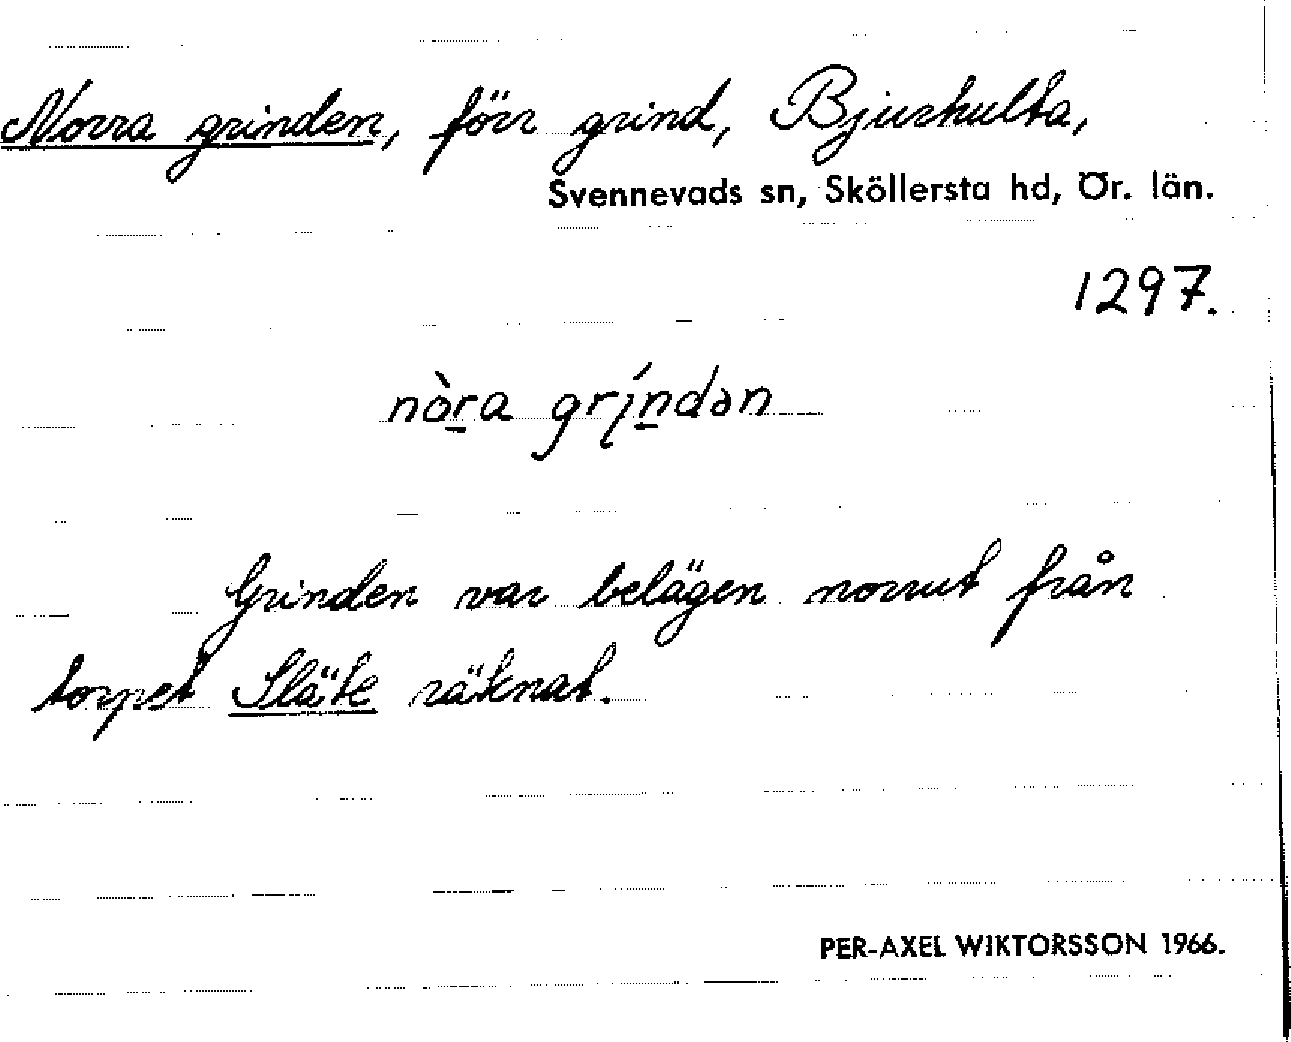 Norra grinden, förr grind, Bjurhulta,
Svennevads sn, Sköllersta hd, Ör. län.
1297.
nòr̲a grín̲dən
Grinden var belägen norrut från
torpet Släte räknat.
PER-AXEL WIKTORSSON 1966.